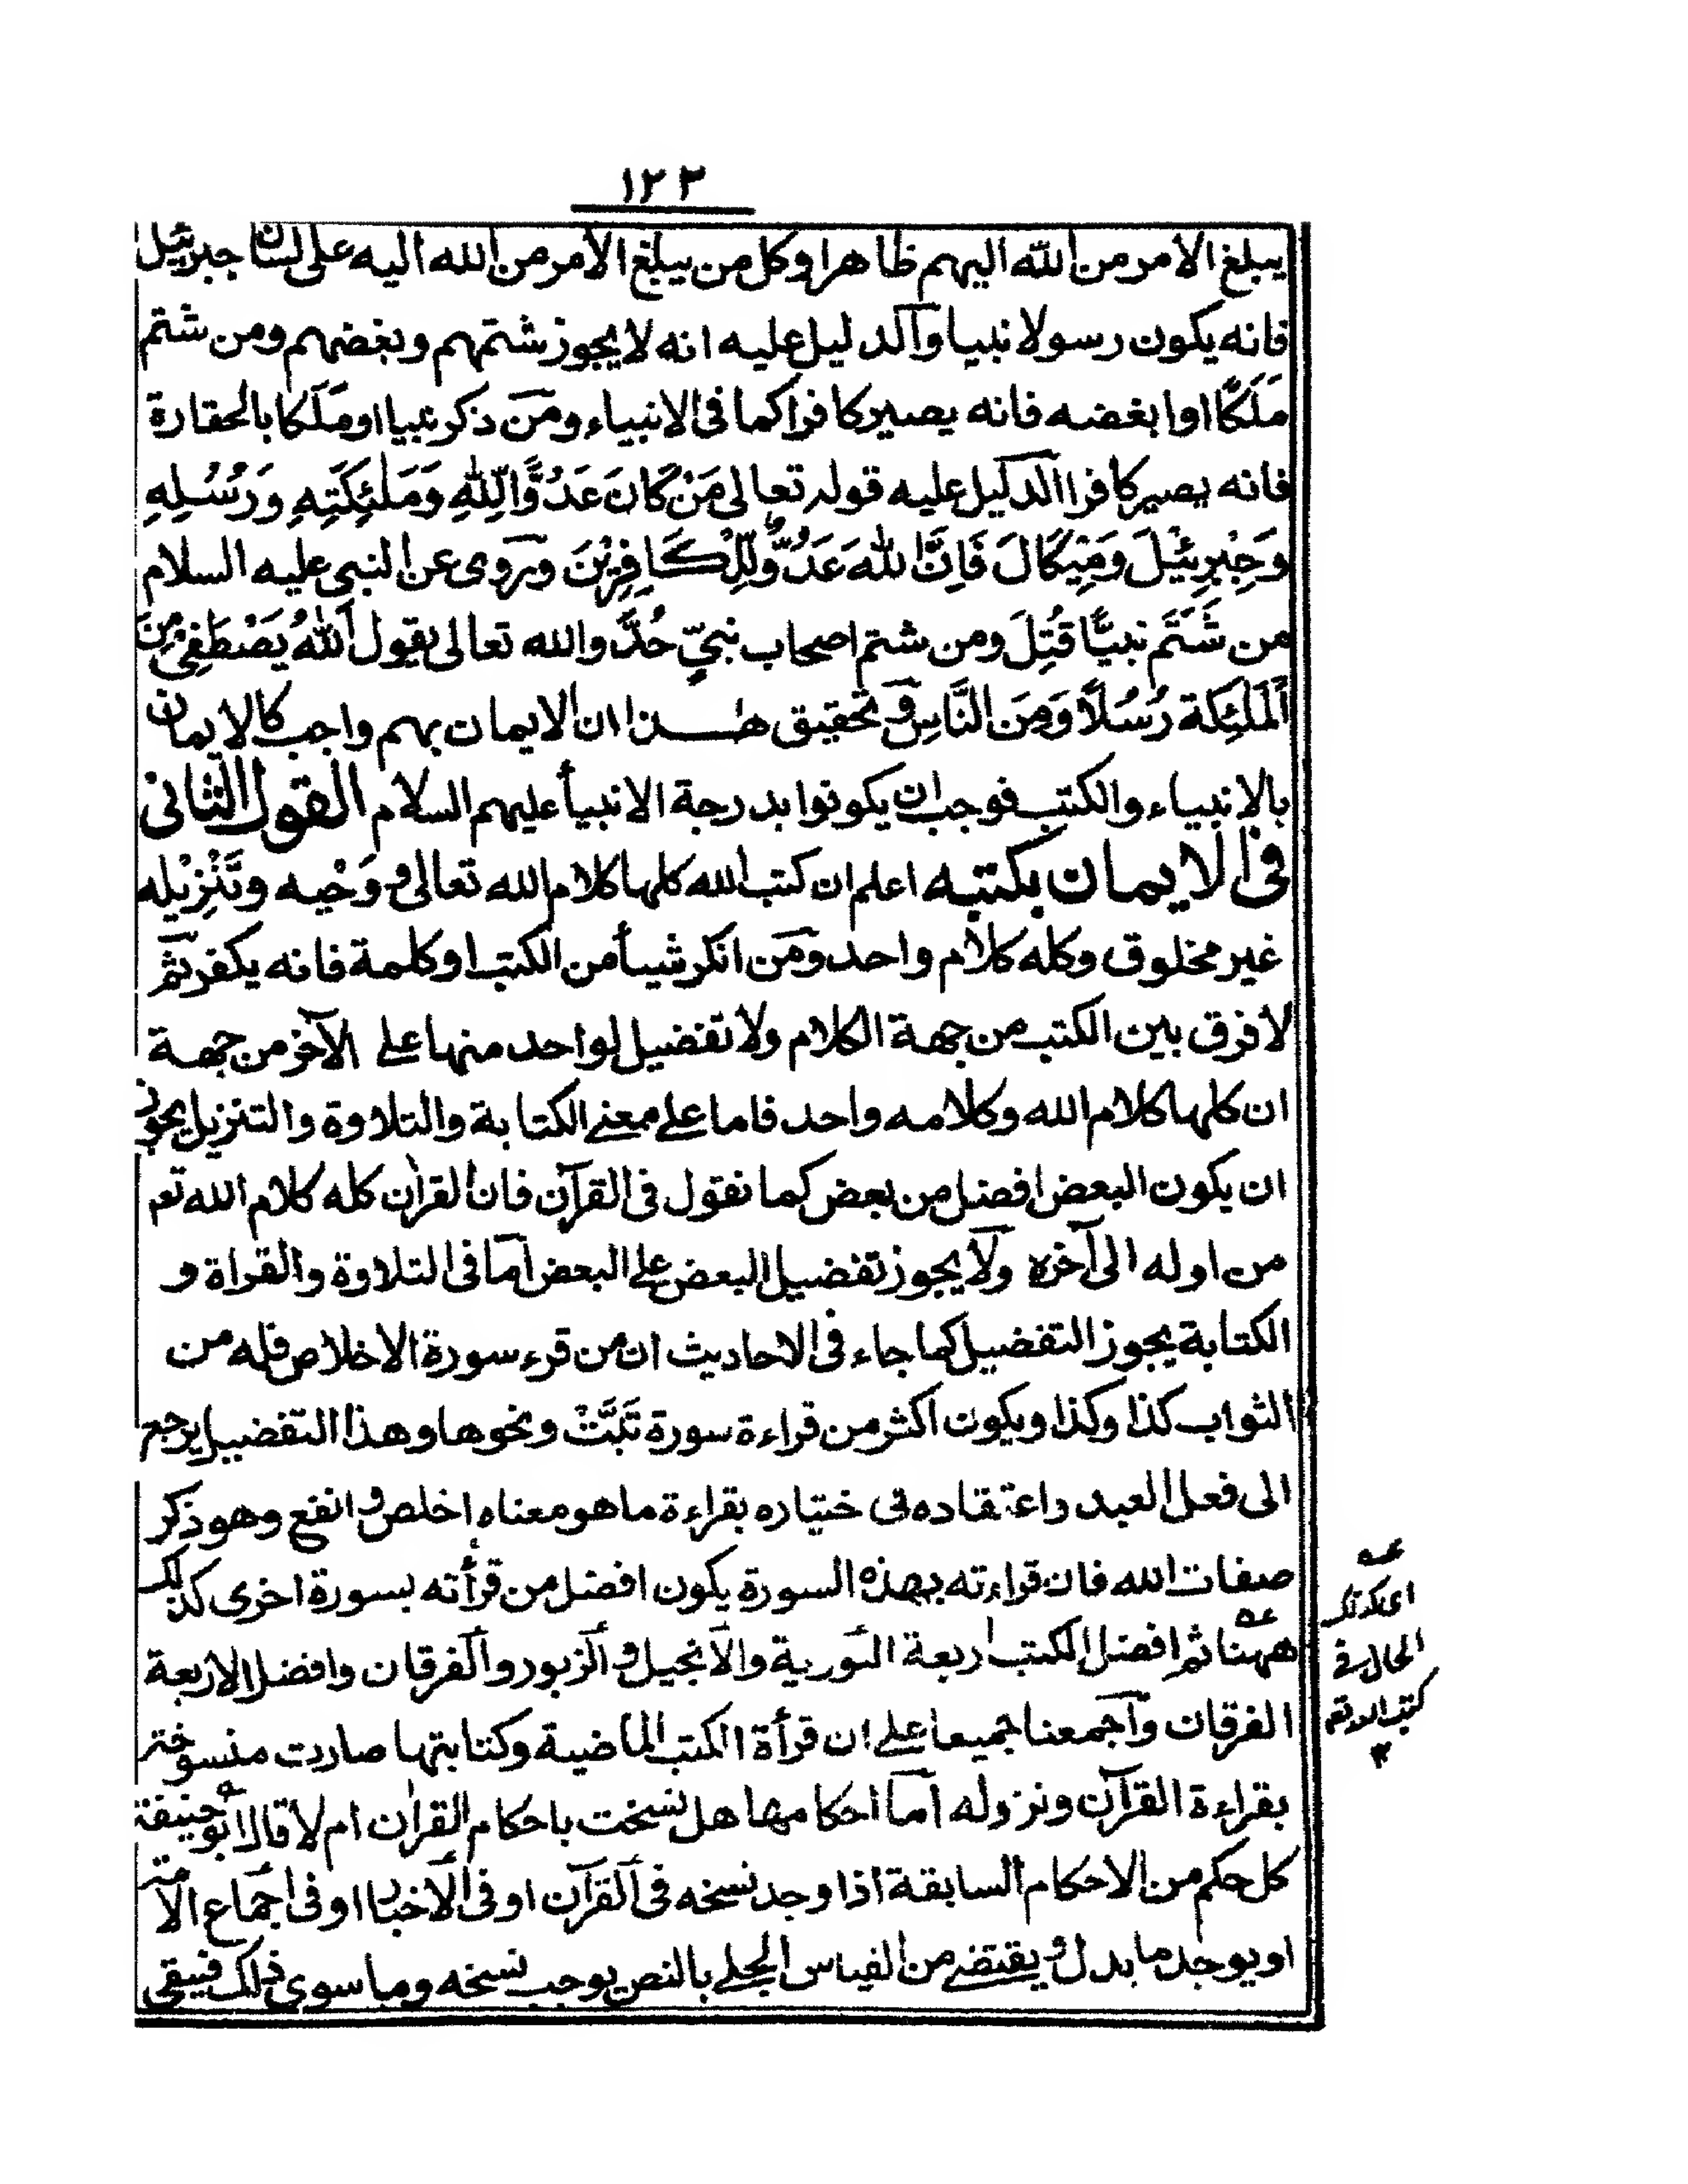 ١٢٣
يبلغ الامر من الله اليهم ظاهرا وكل من يبلغ الامر من الله اليه على لسان جبرئيل
فانه يكون رسولا نبيا والدليل عليه انه لا يجوز شتمهم وبغضهم ومن شتم
مَلَكًا او ابغضه فانه يصير كافرا كما فى الانبياء ومن ذكر نبيا او ملكا بالحقارة
فانه يصير كافرا الدليل عليه قوله تعالى مَنْ كَانَ عَدُوًّا لِّلّٰهِ وَمَلٰئِكَتِهٖ وَرُسُلِهٖ
وَجِبْرِئِيْلَ وَمِيْكَالَ فَاِنَّ اللهَ عَدُوٌّ لِّلْكَافِرِيْنَ وروى عن النبى عليه السلام
من شَتَمَ نبيًّا قُتِلَ ومن شتم اصحاب نبىّ حُدَّ والله تعالى يقول اَللّٰهُ يَصْطَفِىْ مِنَ
الْمَلٰئِكَة رُسُلًا وَمِنَ النَّاسِ وتحقيق هٰذا ان الايمان بهم واجب كالايمان
بالانبياء والكتب فوجب ان يكونوا بدرجة الانبيأ عليهم السلام القول الثانى
فى الايمان بكتبه اعلم ان كتب الله كلها كلام الله تعالى ووَحْيه وتَنْزِيْله
غير مخلوق وكله كلام واحد ومن انكر شيأ من الكتب او كلمة فانه يكفر ثم
لا فرق بين الكتب من جهة الكلام ولا تفضيل لواحد منها على الآخر من جهة
ان كلها كلام الله وكلامه واحد فاما على معنى الكتابة والتلاوة والتنزيل يجوز
ان يكون البعض افضل من بعض كما نقول فى القرآن فان القران كله كلام الله تعم
من اوله الى آخره ولا يجوز تفضيل البعض على البعض اما فى التلاوة والقراة و
الكتابة يجوز التفضيل كما جاء فى الاحاديث ان من قرء سورة الاخلاص فله من
الثواب كذا وكذا ويكون اكثر من قراءة سورة تَبَّتْ ونحوها وهذا التفضيل يرجع
الى فعل العبد واعتقاده فى ختياره بقراءة ما هو معناه اخلص وانفع وهو ذكر
صفات الله فان قراءته بهذه السورة يكون افضل من قرأته بسورة اخرى كذلك
ههنا ثم افضل الكتب اربعة التورية والانجيل والزبور والفرقان وافضل الاربعة
الفرقان واجمعنا جميعا على ان قرأة الكتب الماضية وكتابتها صارت منسوخة
بقراءة القرآن ونزوله اما احكامها هل نسخت باحكام القران ام لا قال ابو حنيفة
كل حكم من الاحكام السابقة اذا وجد نسخه فى القرآن او فى الاخبار او فى اجماع الامة
او يوجد ما بدل ويقتضى من القياس الجلى بالنص يوجب نسخه وما سوى ذلك فيبقى
عـه
اى كذلك
الحال فى
كتب الله تعم